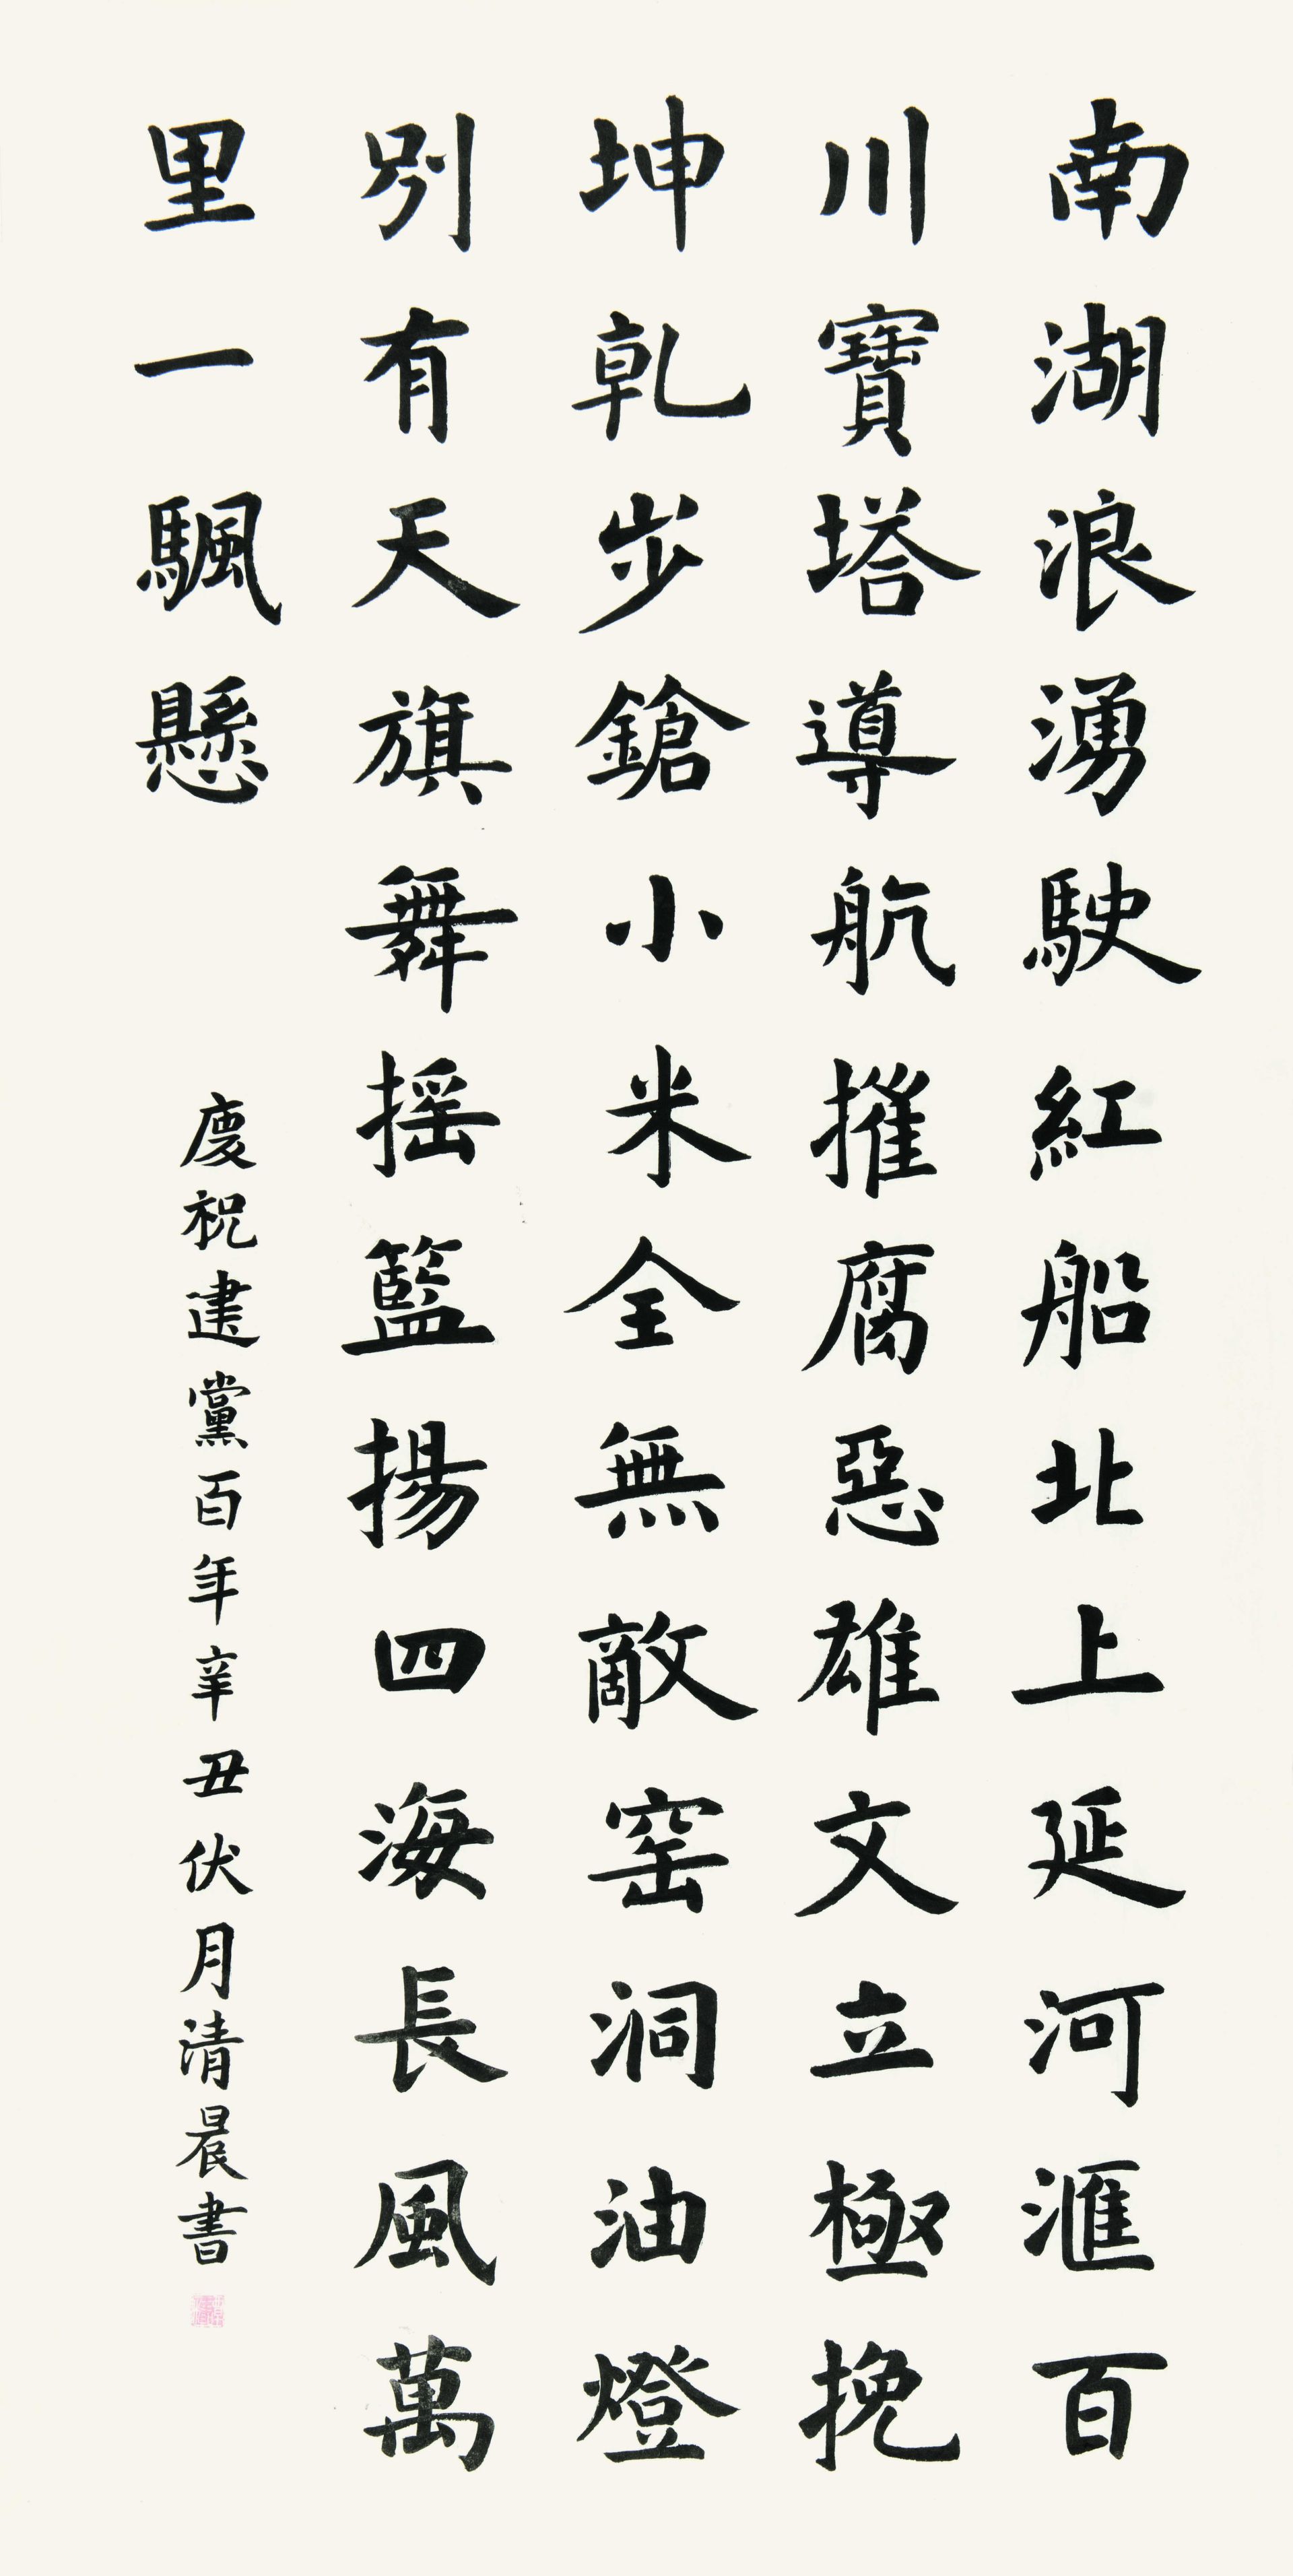 南湖浪湧駛紅船北上延河滙百
川寶塔導航摧腐惡雄文立極挽
坤乾步鎗小米全無敵窑洞油燈
别有天旗舞摇籃揚四海長風萬
里一颿懸
慶祝建黨百年辛丑伏月清晨書